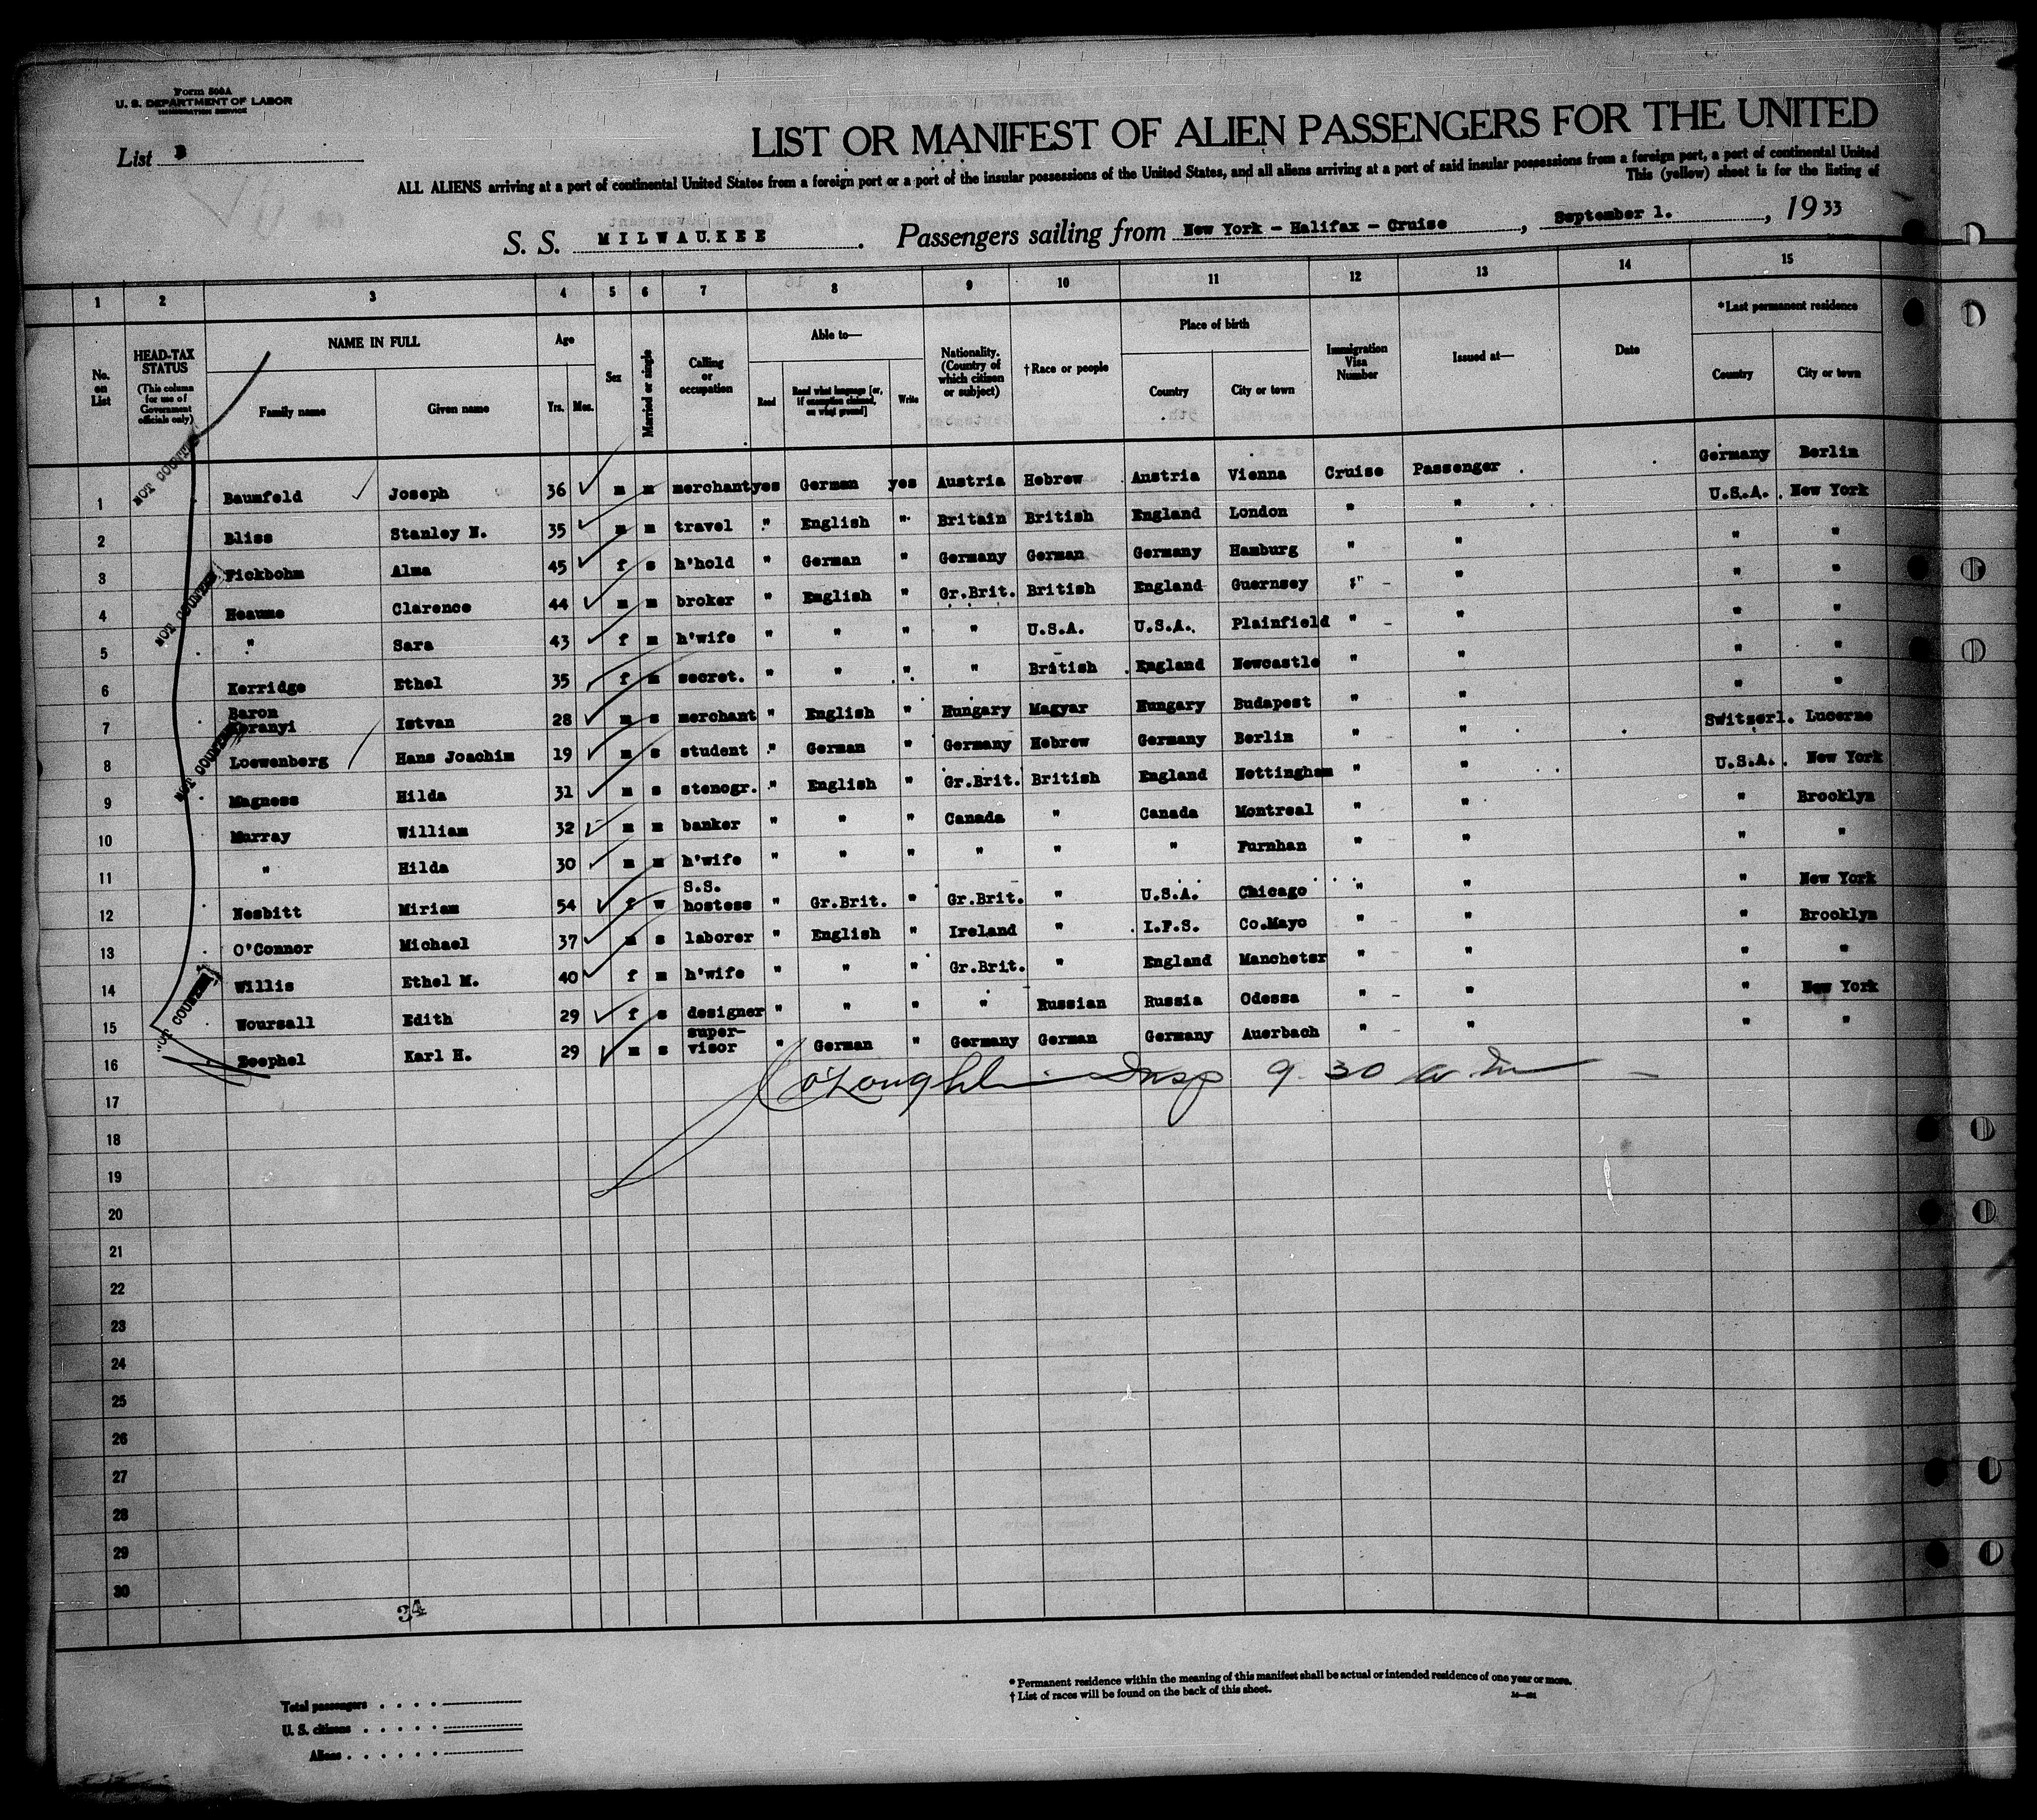 Form 500A
U. S. DEPARTMENT OF LABOR
IMMIGRATION SERVICE
List
LIST OR MANIFEST OF ALIEN PASSENGERS FOR THE UNITED
ALL ALIENS arriving at a port of continental United States from a foreign port or a port of the insular possessions of the United States, and all aliens arriving at a port of said insular possessions from a foreign port, a port of continental United
This (yellow) sheet is for the listing of
S. S. MILWAUKEE. Passengers sailing from New York - Halifax - Cruise, September 1., 1933
1 2 3 4 5 6 7 8 9 10 11 12 13 14 15
No. on List
HEAD-TAX STATUS (This column for use of Government officials only)
NAME IN FULL Family name Given name
Age Yrs. Mos.
Sex
Married or single
Calling or occupation
Able to— Read Read what language [or, if exemption claimed, on what ground] Write
Nationality. (Country of which citizen or subject)
† Race or people
Place of birth Country City or town
Immigration Visa Number
Issued at—
Date
* Last permanent residence Country City or town
1 Baumfeld Joseph 36 m m merchant yes German yes Austria Hebrew Austria Vienna Cruise Passenger Germany Berlin
2 Bliss Stanley N. 35 m m travel " English " Britain British England London " " U.S.A. New York
3 Fickbohm Alma 45 f s h'hold " German " Germany German Germany Hamburg " " " "
4 Heaume Clarence 44 m m broker " English " Gr.Brit. British England Guernsey " " " "
5 " Sara 43 f m h'wife " " " " U.S.A. U.S.A. Plainfield " " " "
6 Kerridge Ethel 35 f m secret. " " " " British England Newcastle " " " "
7 Baron Istvan 28 m s merchant " English " Hungary Magyar Hungary Budapest " " " "
8 Loewenberg Hans Joachim 19 m s student " German " Germany Hebrew Germany Berlin " " Switzerl. Lucerne
9 Magness Hilda 31 m s stenogr. " English " Gr.Brit. British England Nottingham " " U.S.A. New York
10 Murray William 32 m m banker " " " Canada " Canada Montreal " " " Brooklyn
11 " Hilda 30 m m h'wife " " " " " " Furnhan " " " "
12 Nesbitt Miriam 54 f w S.S. hostess " Gr.Brit. " Gr.Brit. " U.S.A. Chicago " " " New York
13 O'Connor Michael 37 m s laborer " English " Ireland " I.F.S. Co.Mayo " " " Brooklyn
14 Willis Ethel M. 40 f m h'wife " " " Gr.Brit. " England Mancheter " " " "
15 Woursall Edith 29 f s designer " " " " Russian Russia Odessa " " " New York
16 Zoephel Karl H. 29 m s super-visor " German " Germany German Germany Auerbach " " " "
NOT COUNTED
NOT COUNTED
NOT COUNTED
NOT COUNTED
O'Loughlin Insp 9 30 a m
17
18
19
20
21
22
23
24
25
26
27
28
29
30
34
Total passengers
U. S. citizens
Aliens
* Permanent residence within the meaning of this manifest shall be actual or intended residence of one year or more.
† List of races will be found on the back of this sheet.